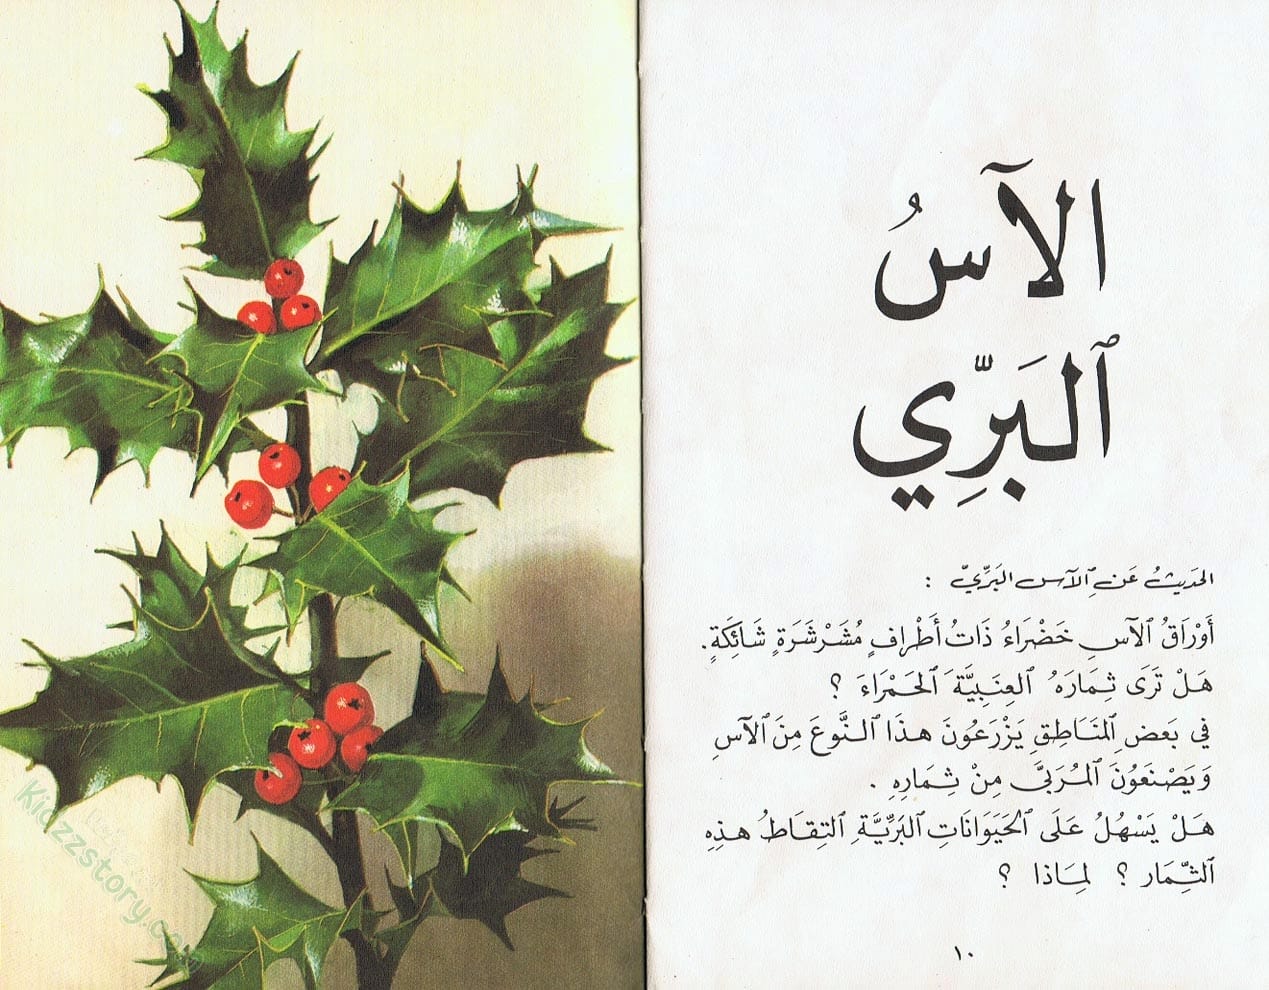 الآسُ
ٱلبَرِّي
الحَديثُ عَنِ ٱلآسِ البَرِّيِّ :
أَوْرَاقُ ٱلآسِ خَضْرَاءُ ذَاتُ أَطْرافٍ مُشَرْشَرَةٍ شَائِكَةٍ .
هَلْ تَرَى ثِمَارَهُ ٱلعِنَبِيَّةَ ٱلحَمْرَاءَ ؟
في بَعضِ ٱلمَنَاطِقِ يَزْرَعُونَ هذَا ٱلنَّوعَ مِنَ ٱلآسِ
وَيَصْنَعُونَ ٱلمُرَبَّى مِنْ ثِمَارِهِ .
هَلْ يَسْهُلُ عَلَى ٱلحَيَوَانَاتِ ٱلبَرِّيَّةِ ٱلتِقَاطُ هذِهِ
ٱلثِّمَار ؟ لِمَاذا ؟
١٠
Kidzzstory.com